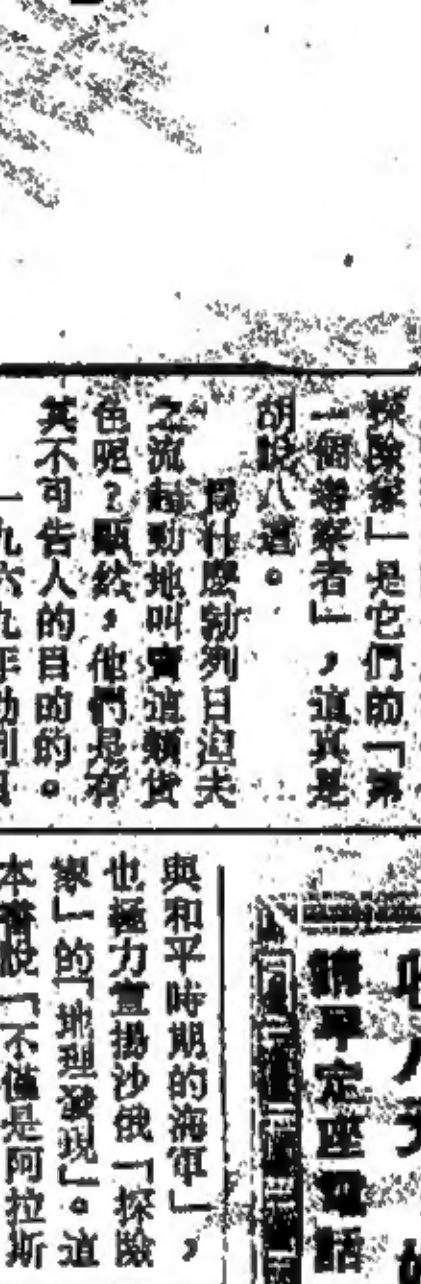 探險家」是它們的「第
一個考察者」，這真是
胡說八道。
爲什麼勃列日涅夫
之流起勁地叫賣這類貨
色呢？顯然，他們是有
其不可告人的目的的。
一九六九年勃列日
請早定座 電話
與和平時期的海軍」，
也極力宣揚沙俄「探險
家」的「地理發現」。這
本書說「不僅是阿拉斯